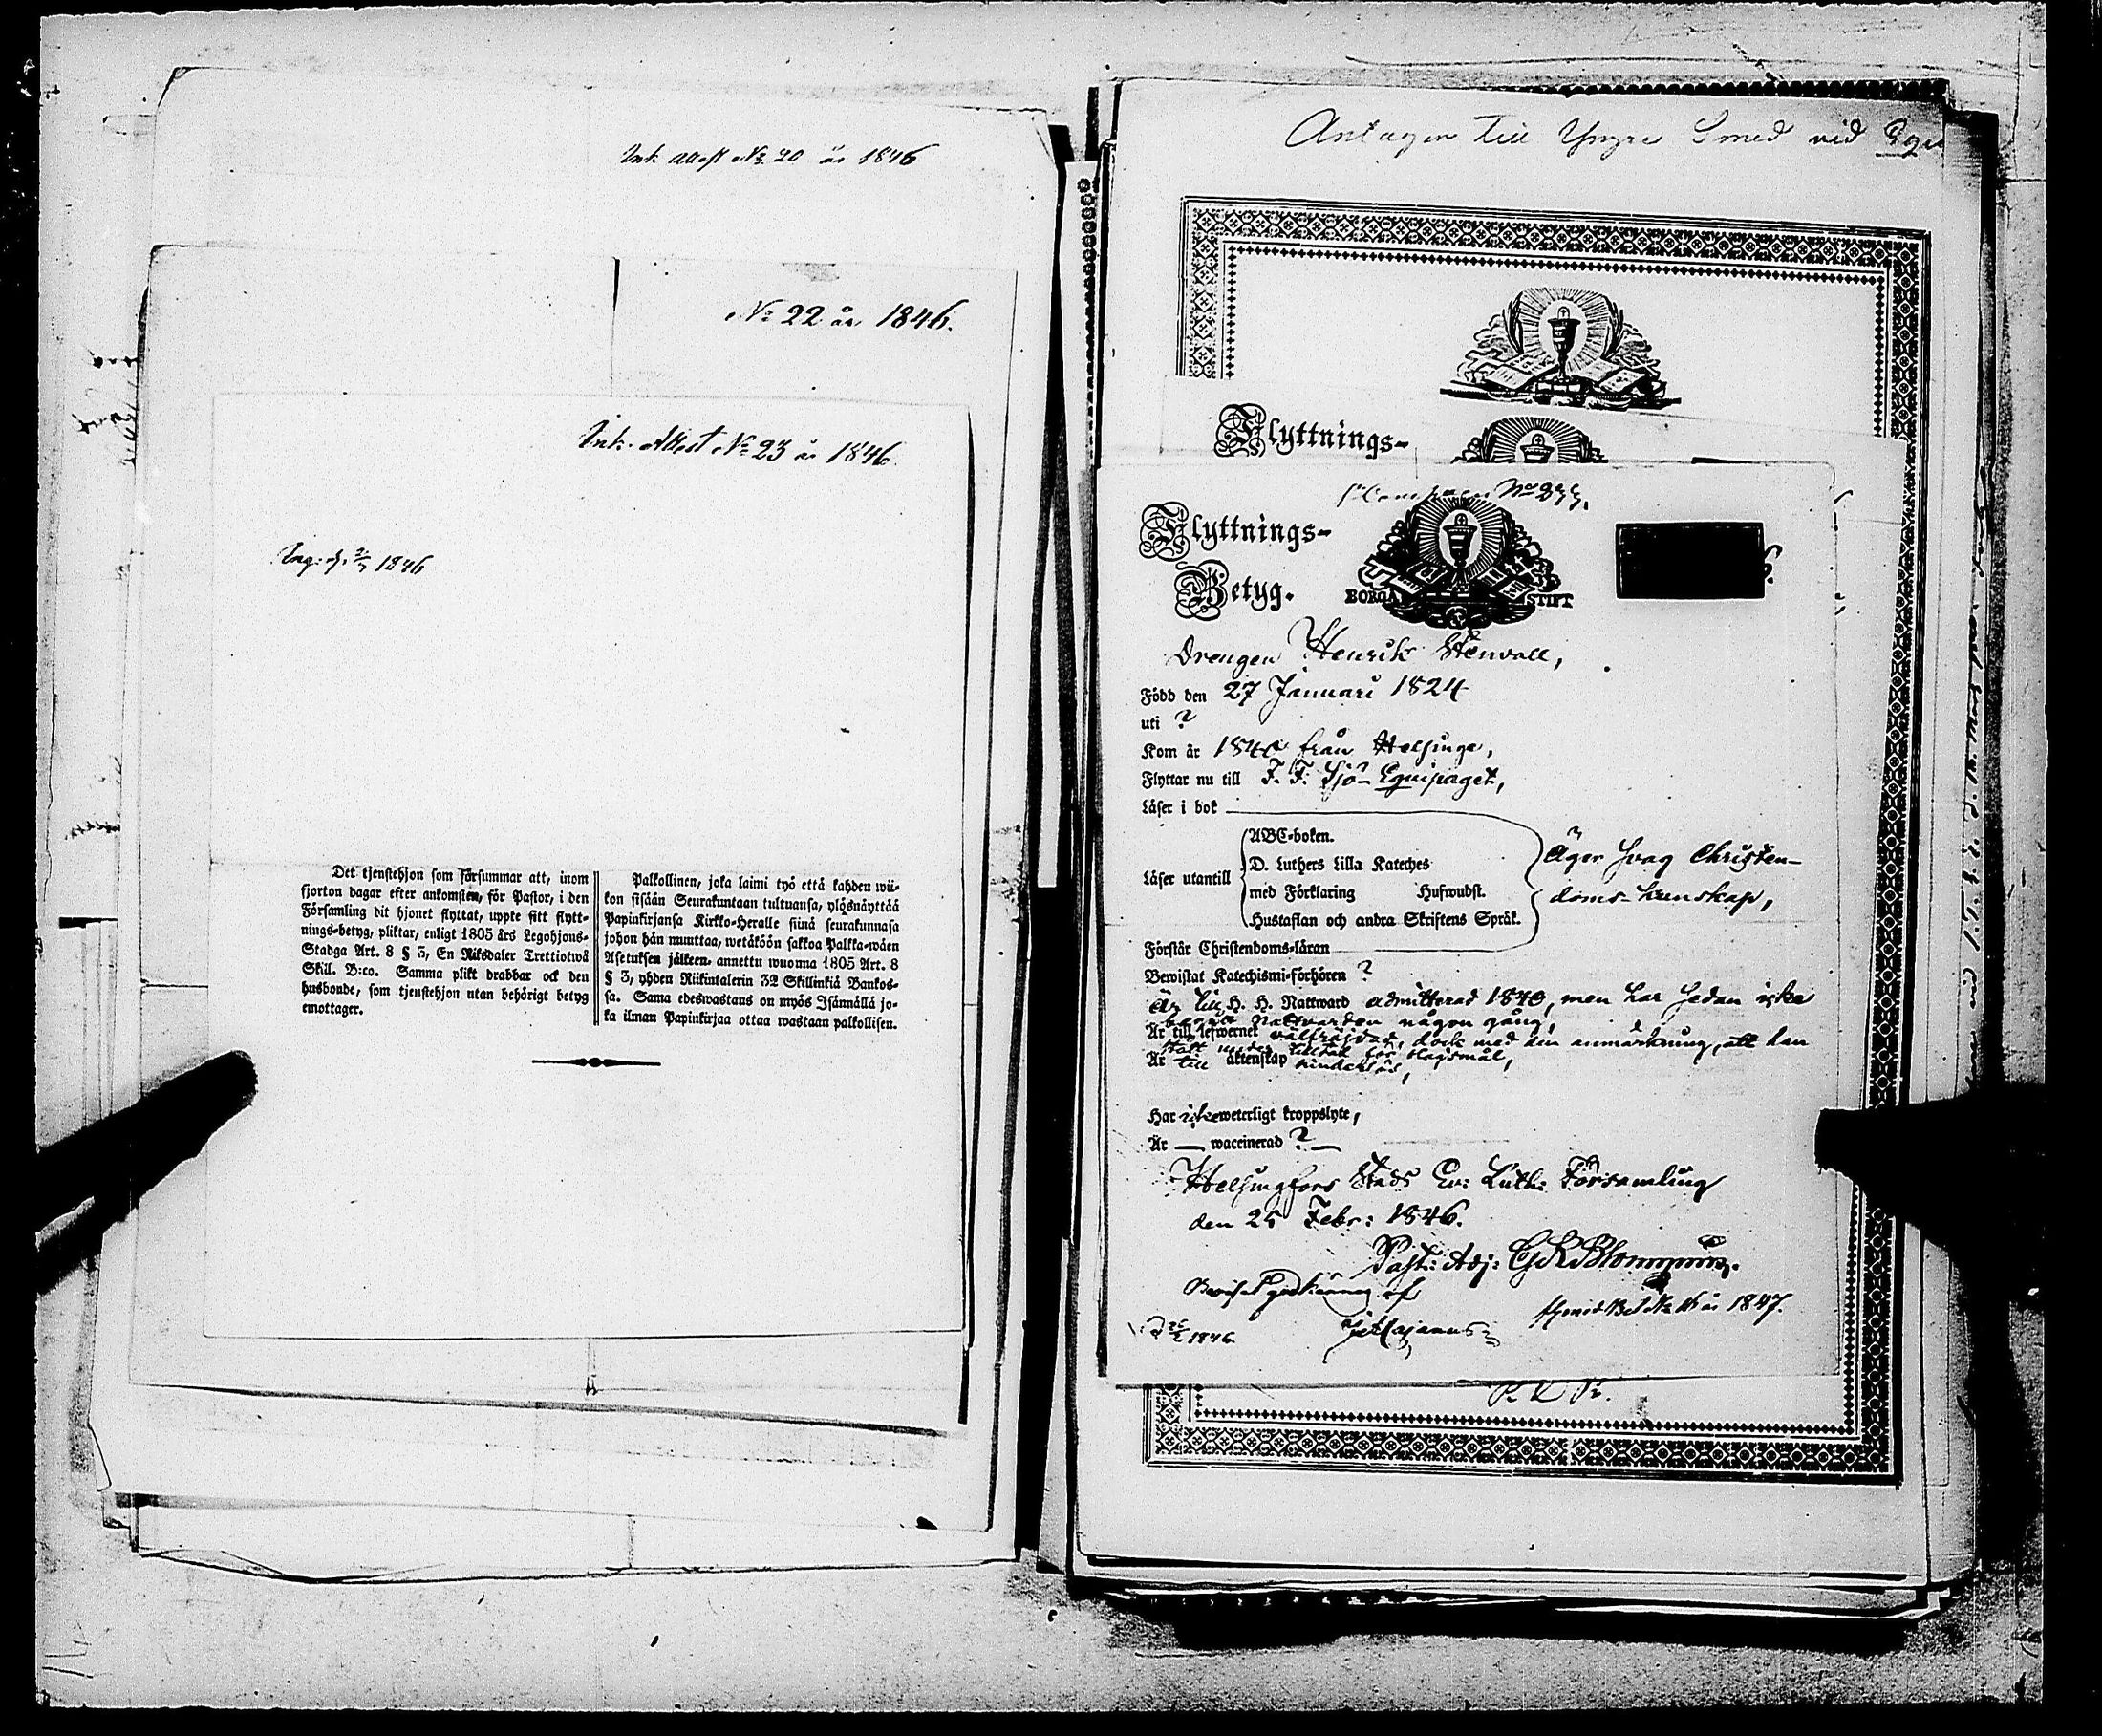 Ink. Attest No 20 år 1846
No 22 år 1846.
Ink. Attest No 23 år 1846
1846
Det tjenstehjon som försummar att, inom
fjorton dagar efter ankomsten, för Pastor, i den
Församling dit hjonet flyttat, uppte sitt flytt-
nings-betyg, pliktar, enligt 1805 års Legohjons-
Stadga Art. 8 § 3, En Riksdaler Trettiotwå
Skill. B:co. Samma plikt drabbar ock den
husbonde, som tjenstehjon utan behörigt betyg
emottager.
Palkollinen, joka laimi lyö että kahden wii-
kon sisään Seurakuntaan tultuansa, ylösnäyttää
Papinkirjansa Kirkko-Herralle siinä seurakunnasa
johon hän muuttaa, wetäköön sakkoa Palkka-wäen
Asetuksen jälkeen, annettu wuonna 1805 Art. 8
§ 3, yhden Riikintalerin 32 Skillinkiä Bankos-
sa. Sama edeswastaus on myös Isännällä jo-
ka ilman Papinkirjaa ottaa wastaan palkollisen.
Antagen till Yngre Smed vid
Flyttnings-
No 277.
Flyttnings-
Betyg.
BORGÅ STIFT
Drengen Henrik Stenvall,
Född den 27 Januari 1824
uti ?
Kom år 1840 från Helsinge,
Flyttar nu till F. F. Sjö-Equipaget,
Läser i bok
Läser utantill
ABC-boken.
D. Luthers Lilla Kateches
med Förklaring Hufwudst.
Hustaflan och andra Skriftens Språk.
Äger svag Christen-
doms-kunskap,
Förstår Christendoms-läran
Bewistat Katechismi-förhören ?
Är till H. H. Nattward admitterad 1840, men har sedan icke
begått Nattvarden någon gång,
Är till lefwernet välfräjdad, dock med den anmärkning, att han
stått under tilltal för slagsmål,
Är till äktenskap hinderslös,
Har icke weterligt kroppslyte,
Är — waccinerad ? —
Helsingfors Stads Ev: Luth: Församling
den 25 Febr: 1846.
Past: Adj:
1846
år 1847.